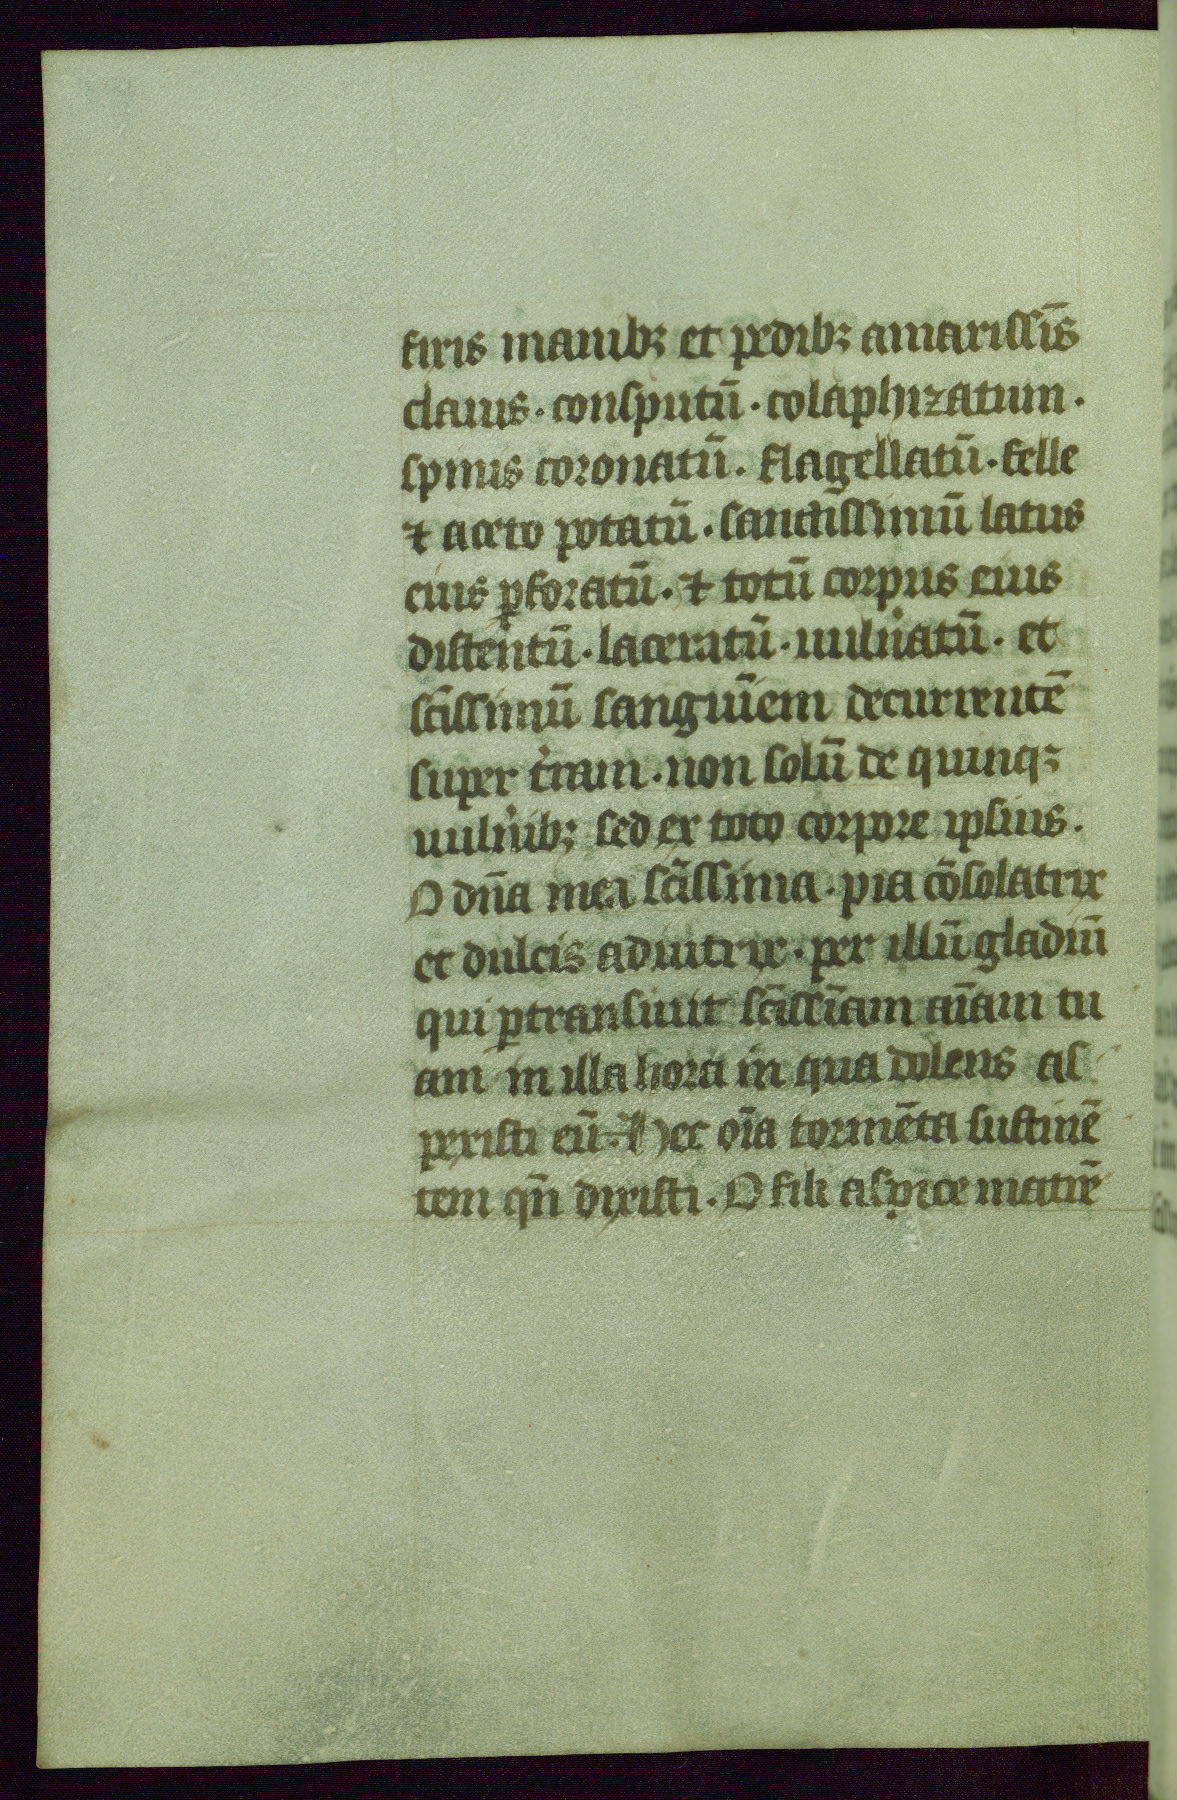 fixis manibꝫ et pedibꝫ amarissīs
clauis · consputū · colaphizatum ·
spinis coronatū · flagellatū · felle
⁊ aceto potatū · sanctissimū latus
eius ꝑforatū · ⁊ totū corpus eius
distentū · laceratū · uulnatū · et
scīssimū sanguīem decurrentē
super tram · non solū de quinqꝫ
uulnibꝫ sed ex toto corpore ipsius ·
O dn̄a mea scīssima · pia cōsolatrix
et dulcis adiutrix · per illū gladiū
qui ꝑtransiuit scīssīam aīam tu
am in illa hora in qua dolens as
pexisti eū · hec oīa tormēta sustinē
tem qn̄ dixisti · O fili aspice matrē